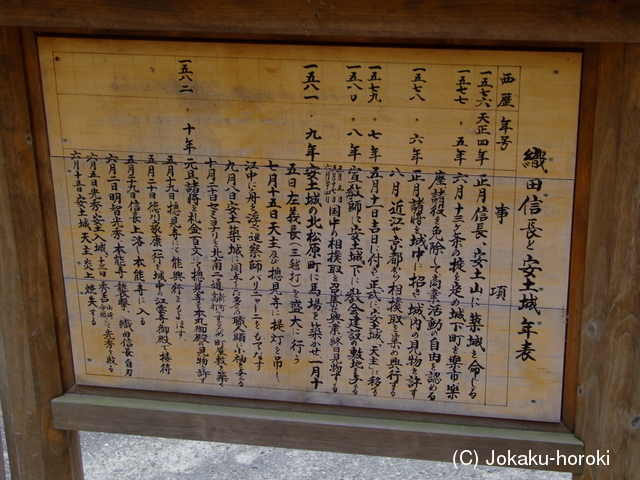 織田信長と安土城年表
西暦 年号 事項
一五七六 天正四年 正月信長、安土山に築城を命じる
一五七七 〃 五年 六月十三ヶ条の掟を定め城下町を楽市・楽
座諸役を免除して商業活動の自由を認める
一五七八 〃 六年 正月諸将を城中に招き城内の見物を許す
八月近江や京都から相撲取を集め興行する
一五七九 〃 七年 五月十一日吉日に付き正式に安土城天主に移る
一五八〇 〃 八年 宣教師に安土城下に教会建設の敷地を与える
国中の相撲取を召集し興業
一五八一 〃 九年 安土城の北松原町に馬場を築かせ一月十
五日左義長(三毬打)を盛大に行う
七月十五日天主及び摠見寺に提灯を吊し
江中に舟を浮べ巡察師バリニャーニをもてなす
九月八日安土築城に関与した多くの職人頭に小袖を与える
十月二日セミナリオ北南二通
一五八二 〃 十年 元旦諸将に礼金百文にて摠見寺・本丸御殿の見物を許す
五月十九日摠見寺にて能興行をもよほす
五月二十日徳川家康一行を城中江雲寺御殿にて接待
五月二十九日信長上洛本能寺に入る
六月二日明智光秀本能寺を襲撃、織田信長自刃
六月五日光秀安土入城、十三日秀吉 にて光秀を敗る
六月十五日安土城天主炎上焼失する
(C) Jokaku-horoki